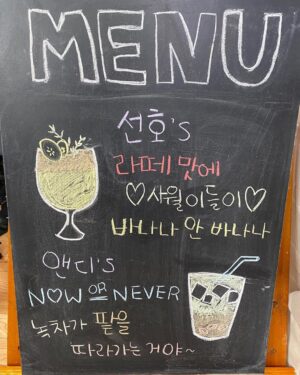 MENU
선호's
라떼 맛에
♡사월이들이♡
바나나 안 바나나
앤디's
NOW OR NEVER
녹차가 팥을
따라가는 거야~